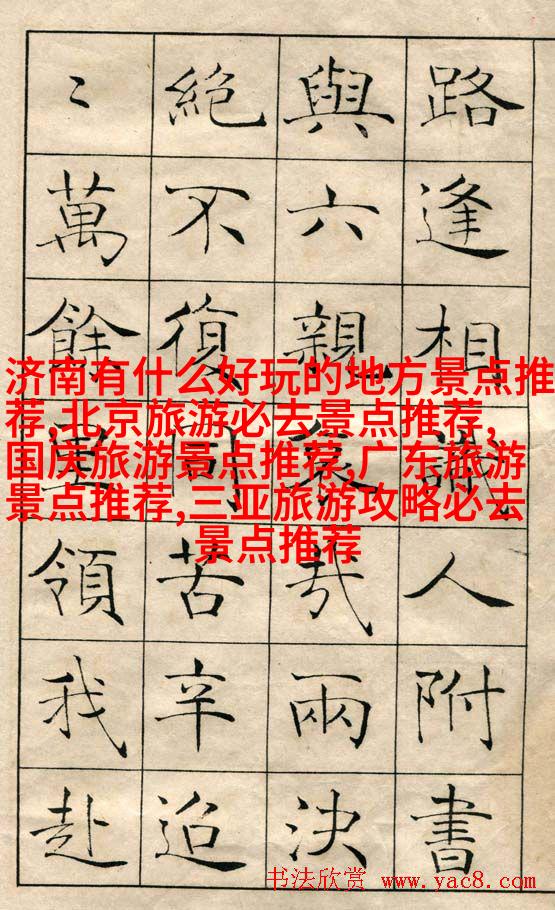 路逢相識人附書
與六親哀哉兩決
絕不復同苦辛迢
〻萬餘領我赴
济南有什么好玩的地方景点推
荐,北京旅游必去景点推荐,
国庆旅游景点推荐,广东旅游
景点推荐,三亚旅游攻略必去
景点推荐
书法欣赏 www.yac8.com